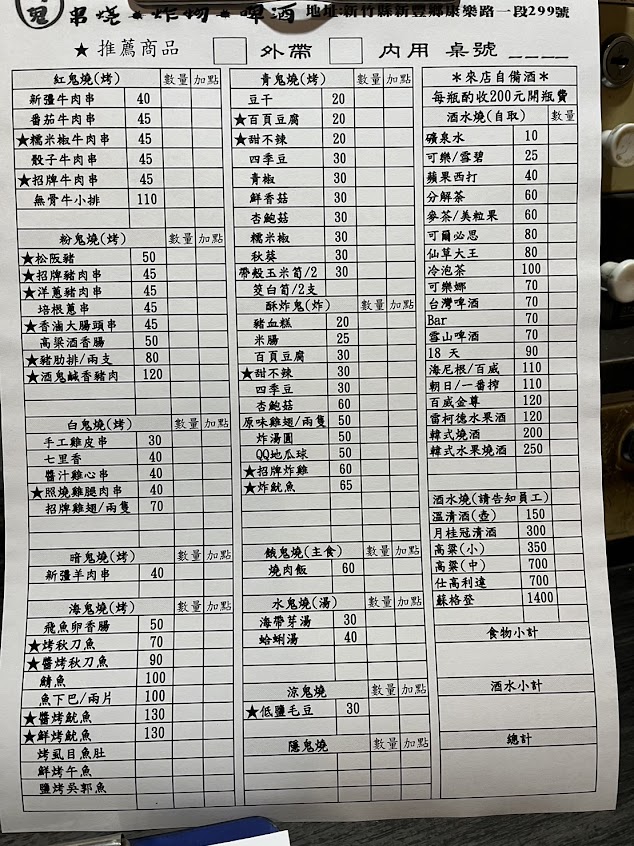 鬼 串燒★炸物★啤酒 地址:新竹縣新豐鄉康樂路一段299號
★推薦商品 外帶 內用 桌號____
紅鬼燒(烤) 數量 加點
新彊牛肉串 40
番茄牛肉串 45
★糯米椒牛肉串 45
骰子牛肉串 45
★招牌牛肉串 45
無骨牛小排 110
粉鬼燒(烤) 數量 加點
★松阪豬 50
★招牌豬肉串 45
★洋蔥豬肉串 45
培根蔥串 45
★香滷大腸頭串 45
高粱酒香腸 50
★豬肋排/兩支 80
★酒鬼鹹香豬肉 120
白鬼燒(烤) 數量 加點
手工雞皮串 30
七里香 40
醬汁雞心串 40
★照燒雞腿肉串 40
招牌雞翅/兩隻 70
暗鬼燒(烤) 數量 加點
新彊羊肉串 40
海鬼燒(烤) 數量 加點
飛魚卵香腸 50
★烤秋刀魚 70
★醬烤秋刀魚 90
鯖魚 100
魚下巴/兩片 100
★醬烤魷魚 130
★鮮烤魷魚 130
烤虱目魚肚
鮮烤午魚
鹽烤吳郭魚
青鬼燒(烤) 數量 加點
豆干 20
★百頁豆腐 20
★甜不辣 20
四季豆 30
青椒 30
鮮香菇 30
杏鮑菇 30
糯米椒 30
秋葵 30
帶殼玉米筍/2 30
筊白筍/2支
酥炸鬼(炸) 數量 加點
豬血糕 20
米腸 25
百頁豆腐 30
★甜不辣 30
四季豆 30
杏鮑菇 60
原味雞翅/兩隻 50
炸湯圓 50
QQ地瓜球 50
★招牌炸雞 60
★炸魷魚 65
餓鬼燒(主食) 數量 加點
燒肉飯 60
水鬼燒(湯) 數量 加點
海帶芽湯 30
蛤蜊湯 40
涼鬼燒 數量 加點
★低鹽毛豆 30
隱鬼燒 數量 加點
*來店自備酒*
每瓶酌收200元開瓶費
酒水燒(自取) 數量
礦泉水 10
可樂/雪碧 25
蘋果西打 40
分解茶 60
麥茶/美粒果 60
可爾必思 80
仙草大王 80
冷泡茶 100
可樂娜 70
台灣啤酒 70
Bar 70
雪山啤酒 70
18 天 90
海尼根/百威 110
朝日/一番搾 110
百威金尊 120
雷柯德水果酒 120
韓式燒酒 200
韓式水果燒酒 250
酒水燒(請告知員工)
溫清酒(壺) 150
月桂冠清酒 300
高粱(小) 350
高粱(中) 700
仕高利達 700
蘇格登 1400
食物小計
酒水小計
總計